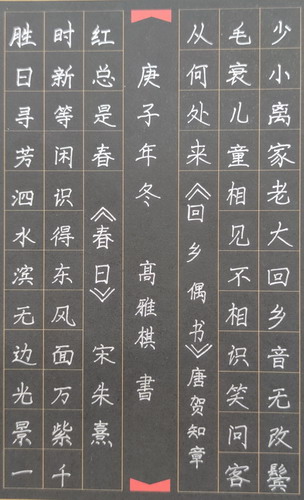 少小离家老大回乡音无改鬓
毛衰儿童相见不相识笑问客
从何处来《回乡偶书》唐贺知章
胜日寻芳泗水滨无边光景一
时新等闲识得东风面万紫千
红总是春《春日》宋朱熹
庚子年冬 高雅棋書